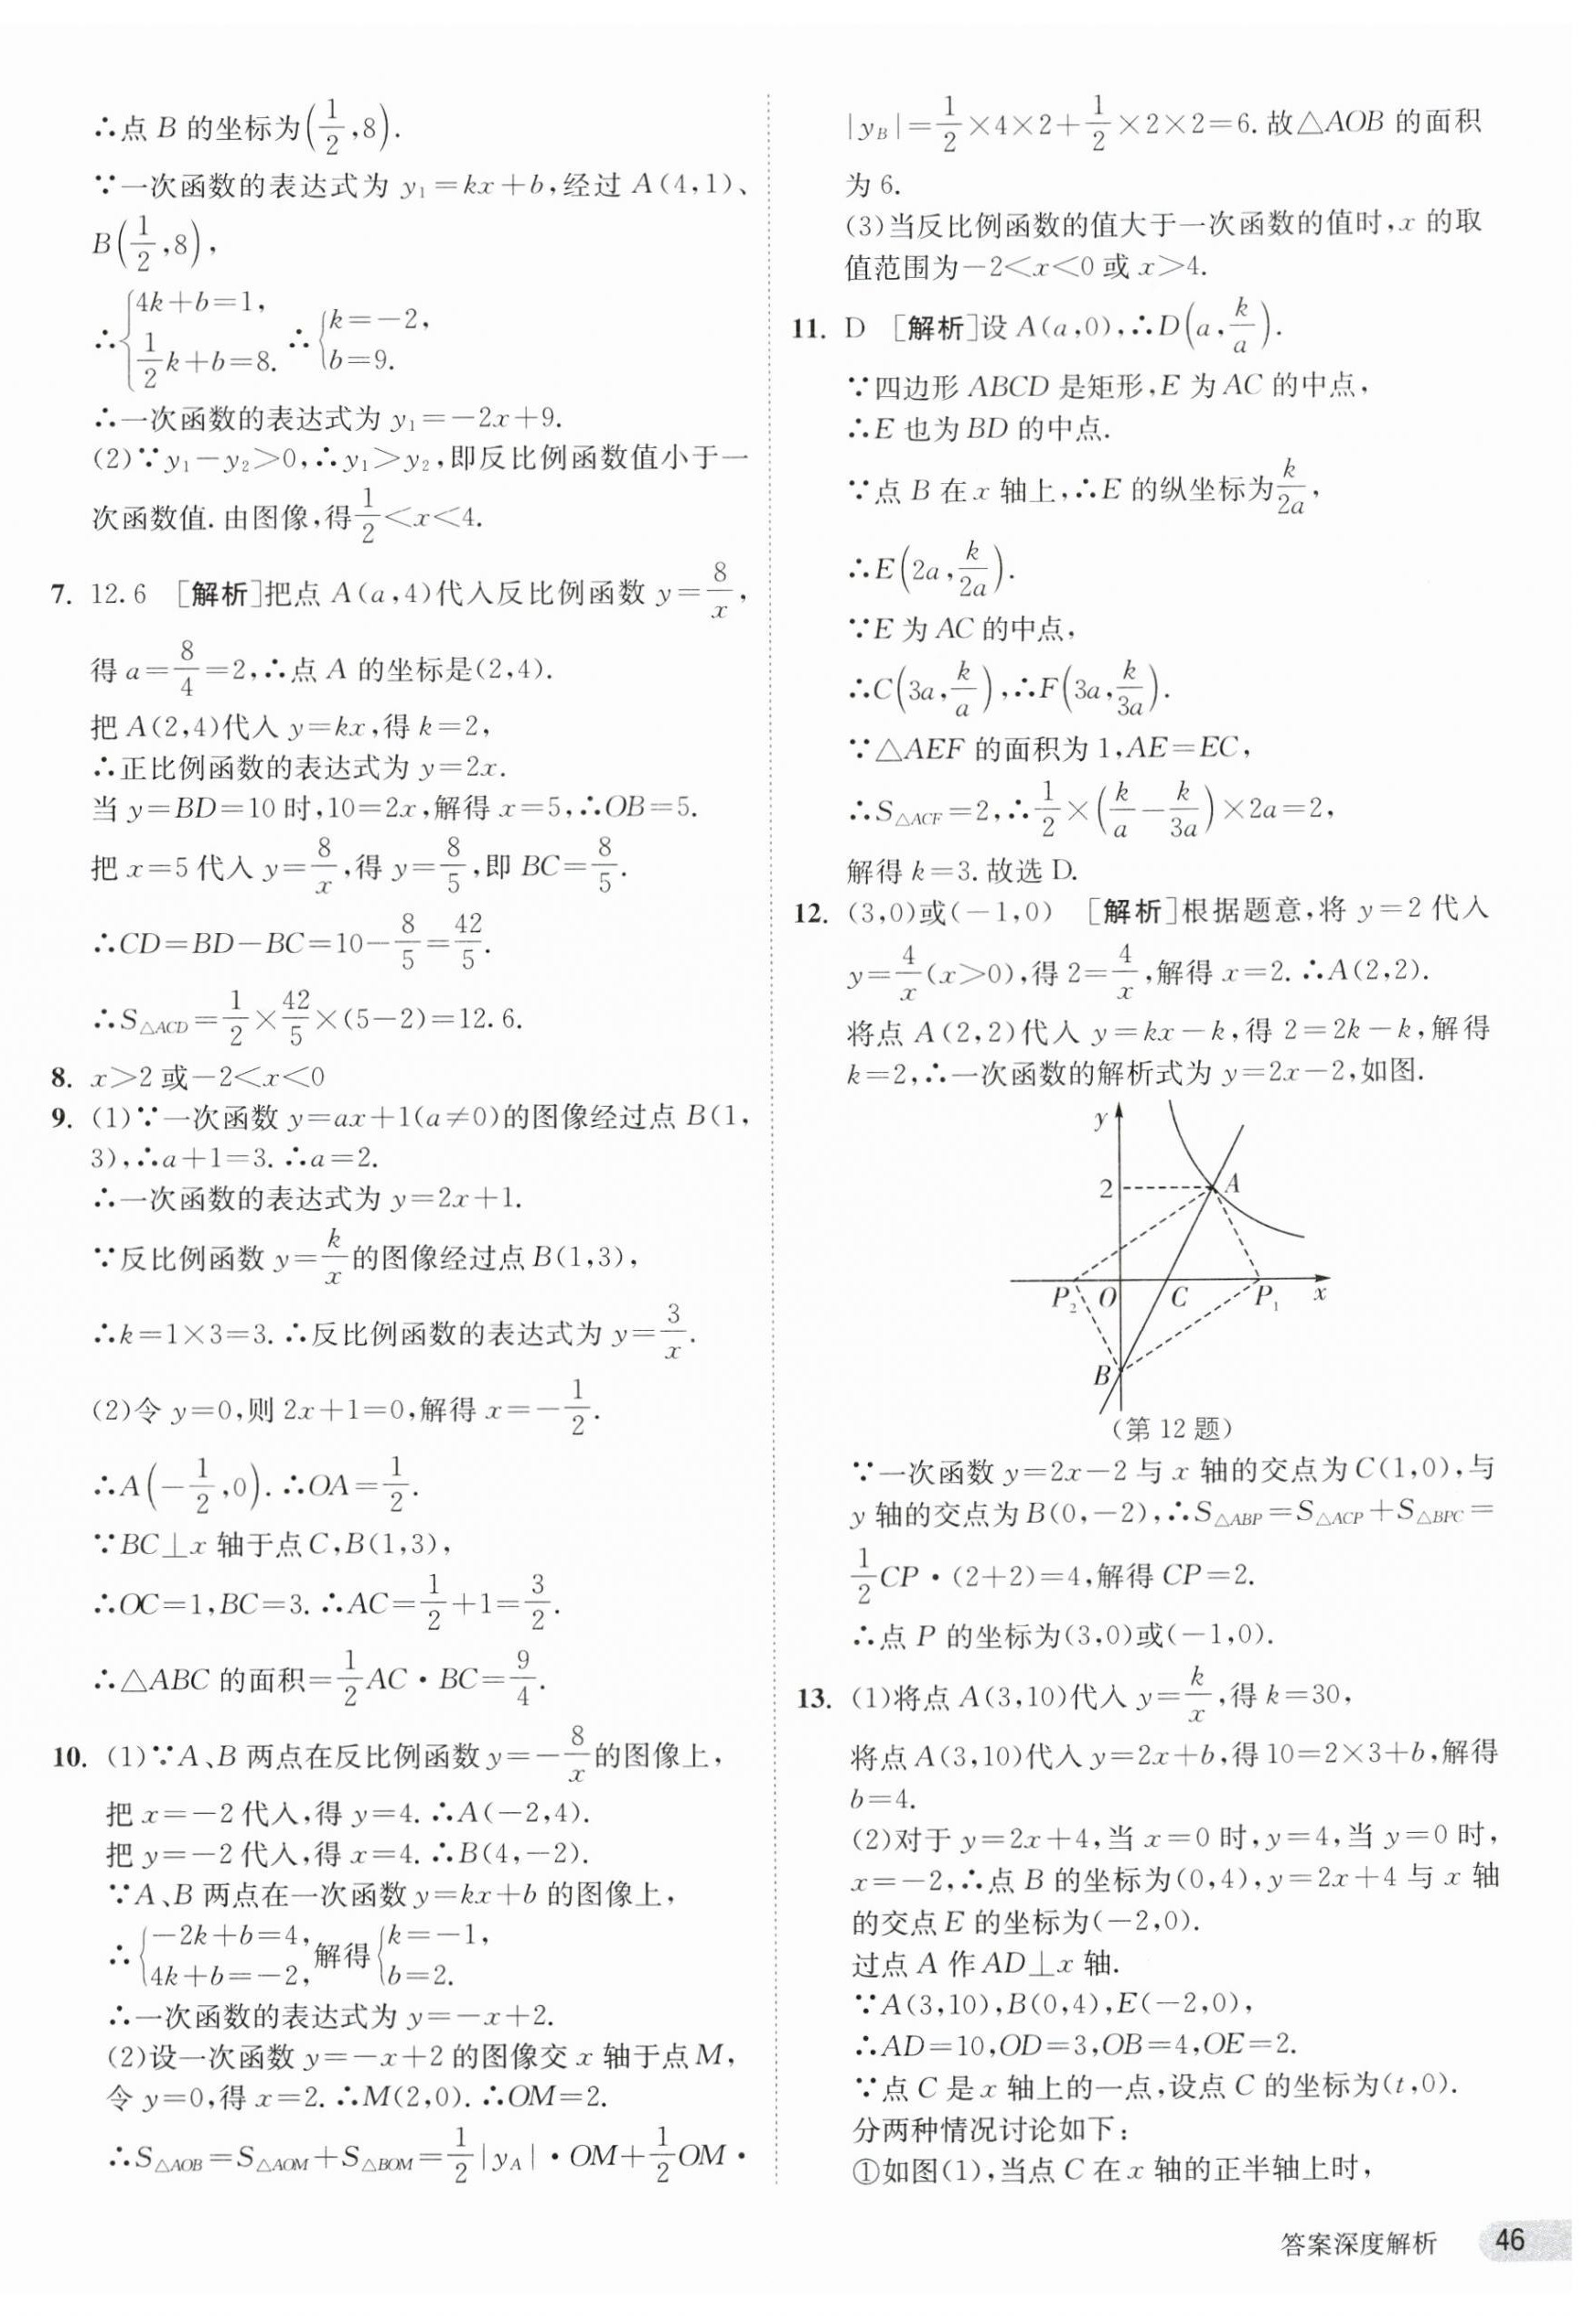 ∴点 B 的坐标为(1/2,8).
∵一次函数的表达式为 y₁=kx+b,经过 A(4,1)、
B(1/2,8),
∴{4k+b=1, 1/2k+b=8. ∴{k=-2, b=9.
∴一次函数的表达式为 y₁=-2x+9.
(2)∵y₁-y₂>0,∴y₁>y₂,即反比例函数值小于一
次函数值.由图像,得1/2<x<4.
7. 12.6 [解析]把点 A(a,4)代入反比例函数 y=8/x,
得 a=8/4=2,∴点 A 的坐标是(2,4).
把 A(2,4)代入 y=kx,得 k=2,
∴正比例函数的表达式为 y=2x.
当 y=BD=10 时,10=2x,解得 x=5,∴OB=5.
把 x=5 代入 y=8/x,得 y=8/5,即 BC=8/5.
∴CD=BD-BC=10-8/5=42/5.
∴S△ACD=1/2×42/5×(5-2)=12.6.
8. x>2 或-2<x<0
9. (1)∵一次函数 y=ax+1(a≠0)的图像经过点 B(1,
3),∴a+1=3.∴a=2.
∴一次函数的表达式为 y=2x+1.
∵反比例函数 y=k/x的图像经过点 B(1,3),
∴k=1×3=3.∴反比例函数的表达式为 y=3/x.
(2)令 y=0,则 2x+1=0,解得 x=-1/2.
∴A(-1/2,0).∴OA=1/2.
∵BC⊥x 轴于点 C,B(1,3),
∴OC=1,BC=3.∴AC=1/2+1=3/2.
∴△ABC 的面积=1/2AC·BC=9/4.
10. (1)∵A、B 两点在反比例函数 y=-8/x的图像上,
把 x=-2 代入,得 y=4.∴A(-2,4).
把 y=-2 代入,得 x=4.∴B(4,-2).
∵A、B 两点在一次函数 y=kx+b 的图像上,
∴{-2k+b=4, 4k+b=-2, 解得{k=-1, b=2.
∴一次函数的表达式为 y=-x+2.
(2)设一次函数 y=-x+2 的图像交 x 轴于点 M,
令 y=0,得 x=2.∴M(2,0).∴OM=2.
∴S△AOB=S△AOM+S△BOM=1/2|yA|·OM+1/2OM·
|yB|=1/2×4×2+1/2×2×2=6.故△AOB 的面积
为 6.
(3)当反比例函数的值大于一次函数的值时,x 的取
值范围为-2<x<0 或 x>4.
11. D [解析]设 A(a,0),∴D(a,k/a).
∵四边形 ABCD 是矩形,E 为 AC 的中点,
∴E 也为 BD 的中点.
∵点 B 在 x 轴上,∴E 的纵坐标为k/2a,
∴E(2a,k/2a).
∵E 为 AC 的中点,
∴C(3a,k/a),∴F(3a,k/3a).
∵△AEF 的面积为 1,AE=EC,
∴S△ACF=2,∴1/2×(k/a-k/3a)×2a=2,
解得 k=3.故选 D.
12. (3,0)或(-1,0) [解析]根据题意,将 y=2 代入
y=4/x(x>0),得 2=4/x,解得 x=2.∴A(2,2).
将点 A(2,2)代入 y=kx-k,得 2=2k-k,解得
k=2,∴一次函数的解析式为 y=2x-2,如图.
y
2
A
P₂
O
C
P₁
x
B
(第 12 题)
∵一次函数 y=2x-2 与 x 轴的交点为 C(1,0),与
y 轴的交点为 B(0,-2),∴S△ABP=S△ACP+S△BPC=
1/2CP·(2+2)=4,解得 CP=2.
∴点 P 的坐标为(3,0)或(-1,0).
13. (1)将点 A(3,10)代入 y=k/x,得 k=30,
将点 A(3,10)代入 y=2x+b,得 10=2×3+b,解得
b=4.
(2)对于 y=2x+4,当 x=0 时,y=4,当 y=0 时,
x=-2,∴点 B 的坐标为(0,4),y=2x+4 与 x 轴
的交点 E 的坐标为(-2,0).
过点 A 作 AD⊥x 轴.
∵A(3,10),B(0,4),E(-2,0),
∴AD=10,OD=3,OB=4,OE=2.
∵点 C 是 x 轴上的一点,设点 C 的坐标为(t,0).
分两种情况讨论如下:
①如图(1),当点 C 在 x 轴的正半轴上时,
答案深度解析 46